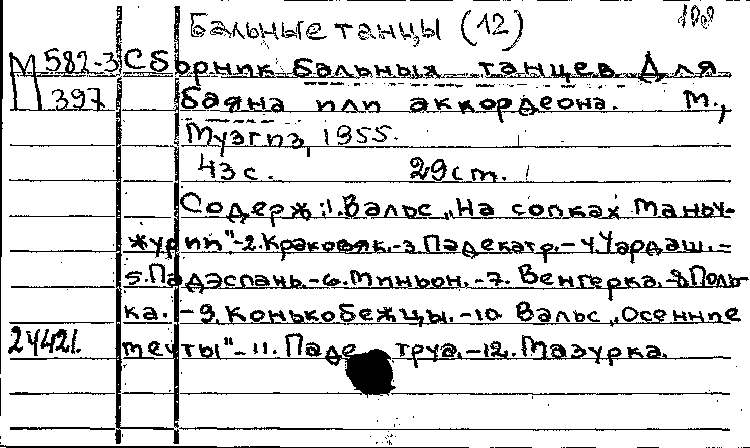 Бальные танцы (12)
М 582-3 Сборник бальных танцев для
397 баяна или аккордеона. М.,
Музгиз, 1955.
43 с. 29 см.
Содерж.: 1. Вальс „На сопках Мань-
журии"-2. Краковяк.-3. Падекатр.-4. Чардаш.-
5. Падэспань.-6. Миньон.-7. Венгерка.-8. Поль-
ка.-9. Конькобежцы.-10 Вальс „Осенние
24421. мечты"-11. Паде труа.-12. Мазурка.